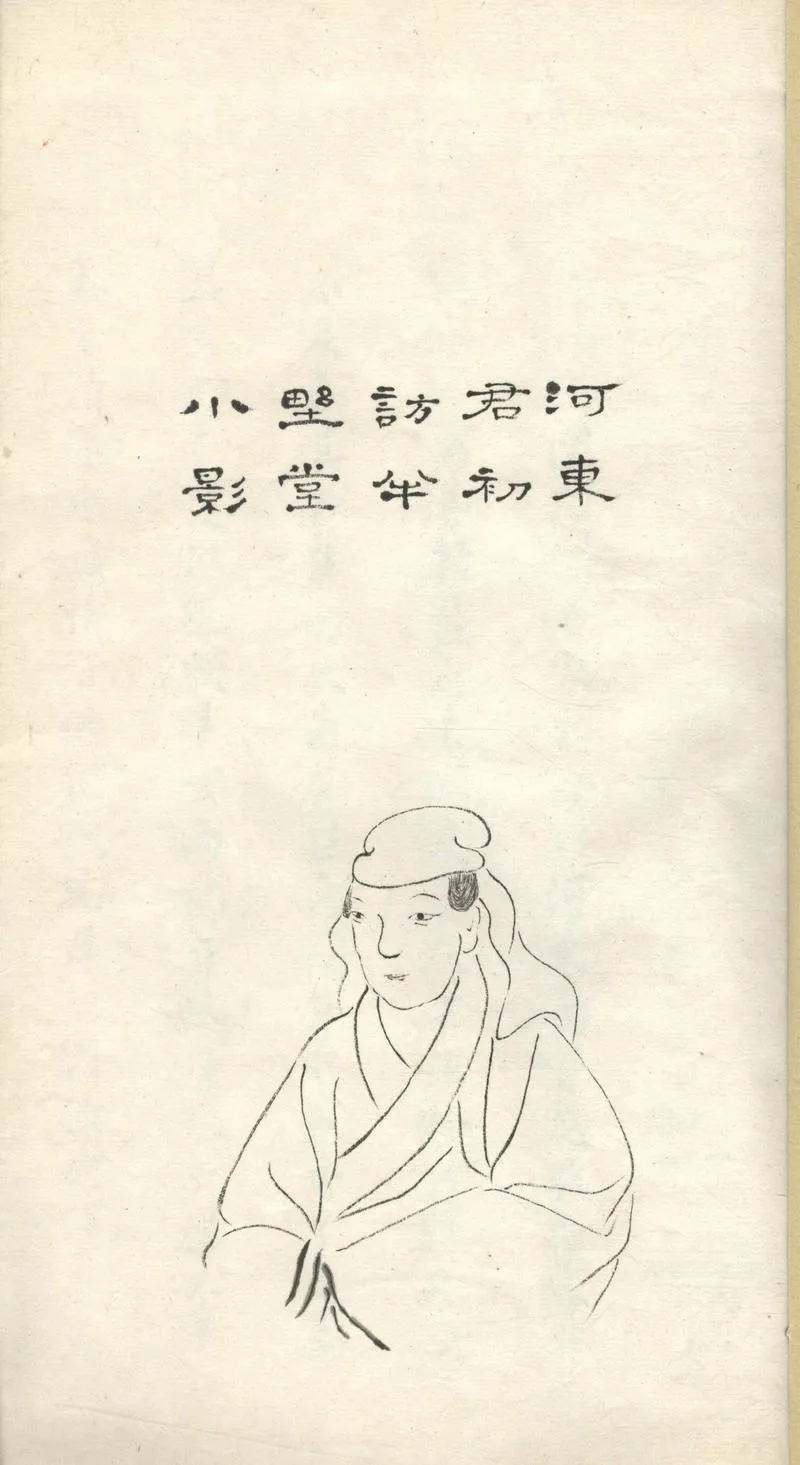 河東
君初
訪半
野堂
小影